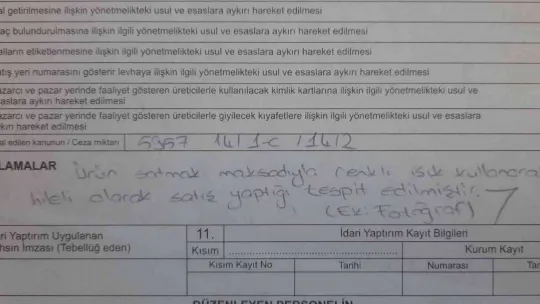 al getirilmesine ilişkin yönetmelikteki usul ve esaslara aykırı hareket edilmesi
aç bulundurulmasına ilişkin ilgili yönetmelikteki usul ve esaslara aykırı hareket edilmesi
alların etiketlenmesine ilişkin ilgili yönetmelikteki usul ve esaslara aykırı hareket edilmesi
atış yeri numarasını gösterir levhaya ilişkin ilgili yönetmelikteki usul ve esaslara aykırı hareket edilmesi
azarcı ve pazar yerinde faaliyet gösteren üreticilerle kullanılacak kimlik kartlarına ilişkin ilgili yönetmelikteki usul ve
saslara aykırı hareket edilmesi
azarcı ve pazar yerinde faaliyet gösteren üreticilerle giyilecek kıyafetlere ilişkin ilgili yönetmelikteki usul ve esaslara
ykırı hareket edilmesi
al edilen kanunun / Ceza miktarı 5957 14/1-c /14/2
LAMALAR Ürün satmak maksadıyla renkli ışık kullanara
hileli olarak satış yaptığı tespit edilmiştir.
(Ek: Fotoğraf)
ari Yaptırım Uygulanan 11. İdari Yaptırım Kayıt Bilgileri
ahsın İmzası (Tebellüğ eden) Kısım Kurum Kayıt
Kısım Kayıt No Tarihi Numarası Tar
DÜZENLEYEN PERSONELİN